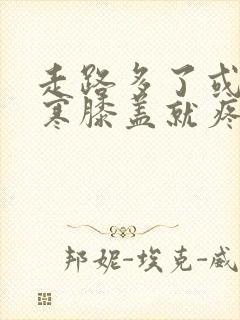 走路多了或
寒膝盖就疼
邦妮-埃克-威